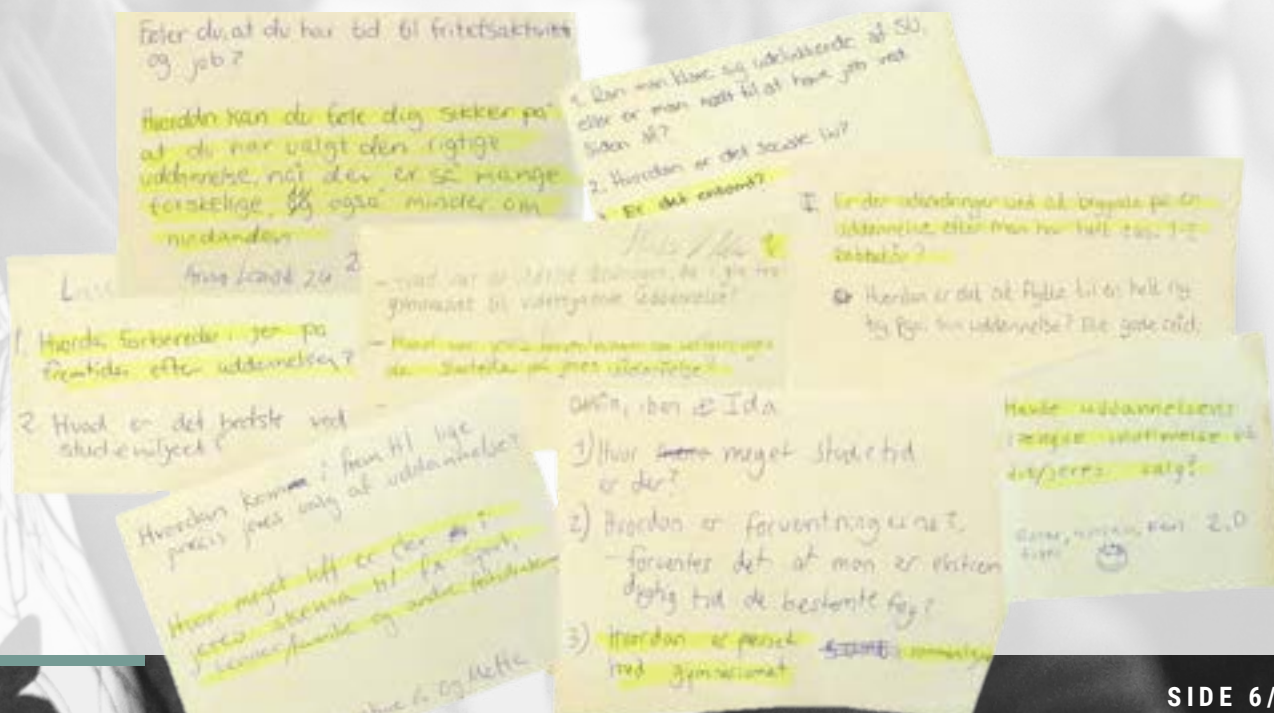 Føler du, at du har tid til fritidsaktivitet
og job?
Hvordan kan du føle dig sikker på
at du har valgt den rigtige
uddannelse, når der er så mange
forskellige, også minder om
hinanden
1. Kan man klare sig udelukkende af SU,
eller er man nødt til at have job ved
siden af?
2. Hvordan er det sociale liv?
Er det ensomt?
I Er der udfordringer ved at begynde på en
uddannelse efter man har haft 1-2
sabbatår?
Hvordan er det at flytte til en helt ny
by pga. sin uddannelse? Evt. gode råd.
1. Hvorda forbereder i jer på
fremtiden efter uddannelsen?
2 Hvad er det bedste ved
studiemiljøet?
- Hvad var de da i gik fra
gymnasiet til videregående uddannelse?
- Hvad var jeres
da startede på jeres uddannelse?
Hvordan kom i frem til lige
præcis jeres valg af uddannelse?
Hvor meget luft er der i
jeres skema til fx sport,
venner/familie og andre
og Mette
iben & Ida
1) Hvor meget studietid
er der?
2) Hvordan er forventningerne?
- forventes det at man er ekstrem
dygtig til de bestemte fag?
3) Hvordan er presset
ived gymnasiet
Havde uddannelsens
længde indflydelse på
dit/jeres valg?
2.D
SIDE 6/